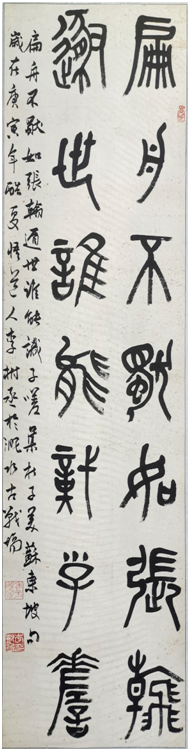 扁舟不獨如張翰
遯世誰能識子嗟
扁舟不獨如張翰遁世誰能識子嗟集杜子美蘇東坡句
歲在庚寅年酷夏悟道人李樹丞於淝水古戰場